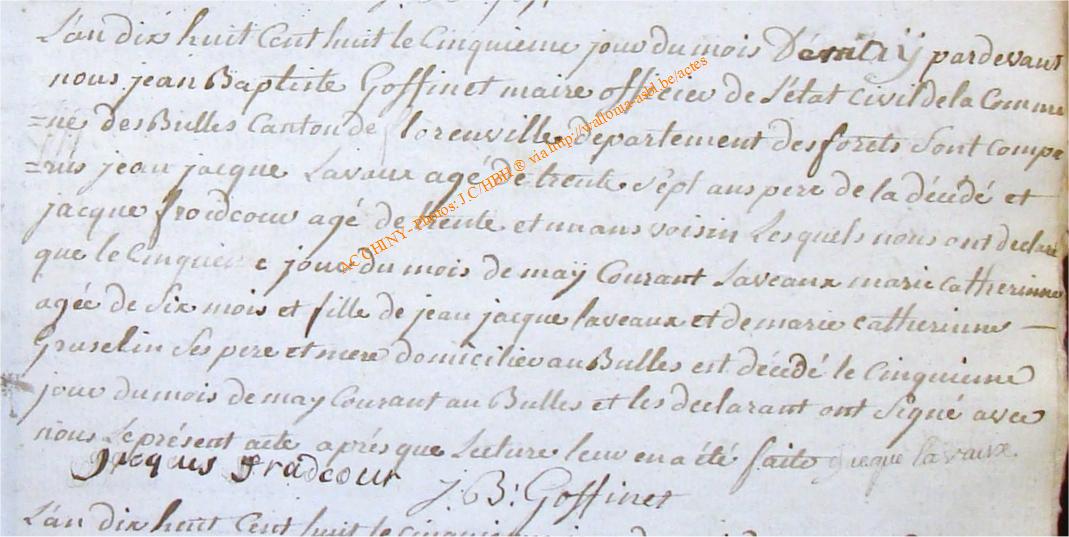 L'an dix huit Cent huit le Cinquieme jour du mois De maÿ pardevant
nous jean Baptiste Goffinet maire officier de L'état Civil de la Commu
=ne des Bulles Canton de florenville département des forets Sont compa
=rus jean jacque Lavaux agé de trente Sept ans pere de la décidé et
jacque froidcour agé de trente et un ans voisin Lesquels nous ont declaré
que le Cinquieme jour du mois de maÿ Courant Laveaux marie catherinne
agée de Six mois et fille de jean jacque laveaux et de marie catherinne —
Gruselin Ses pere et mere domicilier au Bulles est décédé le Cinquieme
jour du mois de may Courant au Bulles et les declarant ont Signé avec
nous Le présent acte aprés que Lecture leur en a été faite jacque lavaux
jacques fradcour
J. Bt Goffinet
L'an dix huit Cent huit le cinquieme
AC CHINY - Photos: J.C/HBH ® via http://wallonia-asbl.be/actes